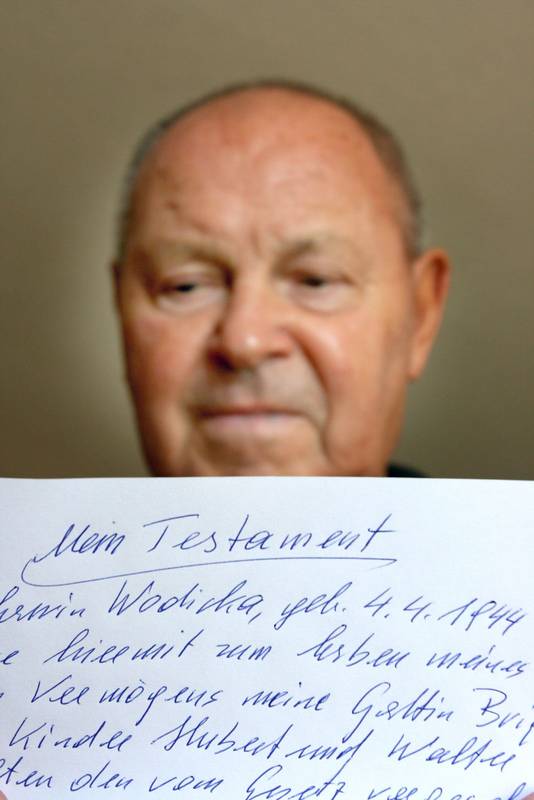 Mein Testament
Erwin Wodicka, geb. 4.4.1944
e hiermit zum Erben meines
n Vermögens meine Gattin Brig
Kinder Hubert und Walter
lten den vom Gesetz vorges